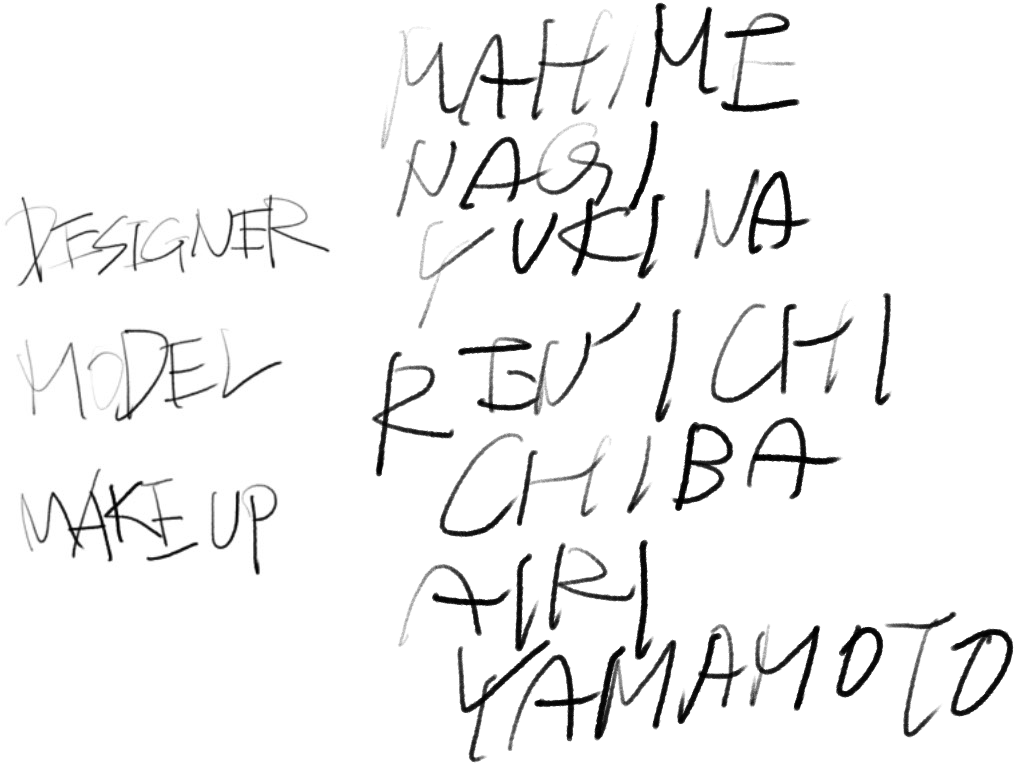 DESIGNER
MODEL
MAKE UP
MAHIME
NAGI
YUKINA
REN'ICHI
CHIBA
AIRI
YAMAMOTO